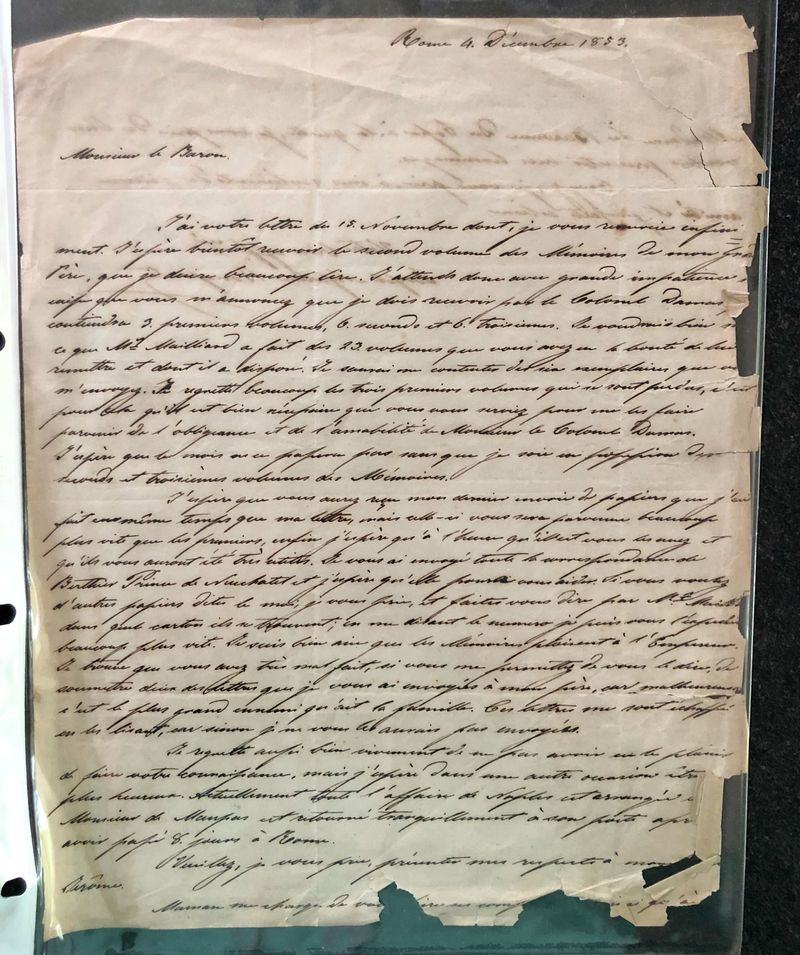 Rome 4. Décembre 1853.
Monsieur le Baron.
J'ai votre lettre du 15. Novembre dont, je vous remercie infini
ment. J'espère bientôt recevoir le second volume des Mémoires de mon Grand
Père, que je désire beaucoup lire. J'attends donc avec grande impatience
caisse que vous m'annoncez que je dois recevoir par le Colonel Damas,
contiendra 3. premiers volumes, 6. seconds et 6. troisièmes. Je voudrais bien
ce que Mr. Mailliard a fait des 23. volumes que vous avez eu la bonté de lui
remettre et dont il a disposé. Je saurai me contenter des six exemplaires que
m'envoyez. Je regrette beaucoup les trois premiers volumes qui se sont perdus, c'est
pour cela qu'il est bien nécessaire que vous vous serviez pour me les faire
parvenir de l'obligeance et de l'amabilité de Monsieur le Colonel Damas.
J'espère que le mois ne se passera pas sans que je sois en possession des
seconds et troisièmes volumes des Mémoires.
J'espère que vous aurez reçu mon dernier envoi de papiers que j'ai
fait en même temps que ma lettre, mais celle-ci vous sera parvenue beaucoup
plus vite que les premiers, enfin j'espère qu'à l'heure qu'il est vous les avez et
qu'ils vous auront été très utiles. Je vous ai envoyé toute la correspondance de
Berthier Prince de Neuchatel et j'espère qu'elle pourra vous aider. Si vous voulez
d'autres papiers dites le moi, je vous prie, et faites vous dire par Mr.
dans quels cartons ils se trouvent; en me disant le numero je puis vous
beaucoup plus vite. Je suis bien aise que les Mémoires plaisent à l'Empereur.
Je trouve que vous avez très mal fait, si vous me permettez de vous le dire, de
soumettre deux des lettres que je vous ai envoyées à mon père, car malheureuse
c'est le plus grand ennemi qu'ait la famille. Ces lettres me sont échappées
en les lisant, car sinon je ne vous les aurais pas envoyées.
Je regrette aussi bien vivement de ne pas avoir eu le plaisir
de faire votre connaissance, mais j'espère dans une autre occasion être
plus heureux. Actuellement toute l'affaire de Naples est arrangée
Monsieur de Maupas est retourné tranquillement à son poste
avoir passé 8. jours à Rome.
Veuillez, je vous prie, présenter mes respects à mon
Jérôme.
Maman me charge de